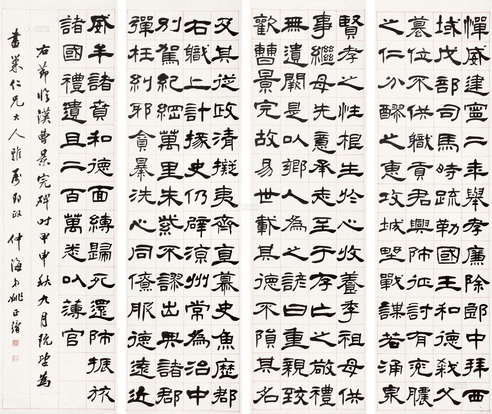 憚威建寧二年舉孝廉除郎中拜西
域戊部司馬時疏勒國王和德弒父
篡位不供職貢君興師征討有兗膿
之仁分醪之惠攻城野戰謀若涌泉
賢孝之性根生於心收養季祖母供
事繼母先意承志至于存亡之敬禮
無遺闕是以鄉人為之諺曰重親致
歡曹景完故易世載其德不隕其名
及其從政清擬夷齊直慕史魚歷郡
右職上計掾史仍辟涼州常為治中
別駕紀綱萬里朱紫不謬出典諸郡
彈枉糾邪貪暴洗心同僚服德遠近
威牟諸賁和德面縛歸死還師振旅
諸國禮遺且二百萬悉以薄官
右節臨漢曹景完碑時甲申秋九月既望為
書仁兄大人雅屬即政 仲海弟姚正鏞